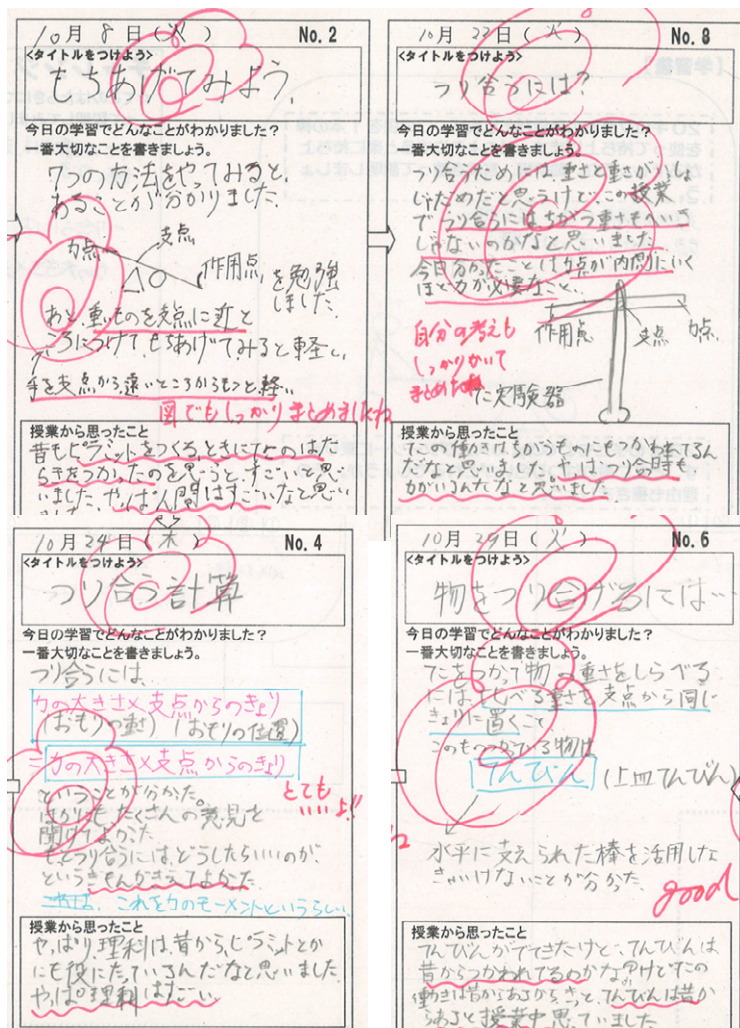 10月8日(火) No.2
<タイトルをつけよう>
もちあげてみよう、
今日の学習でどんなことがわかりました?
一番大切なことを書きましょう。
7つの方法をやってみると、
あることが分かりました。
力点
支点
作用点
を勉強
しました。
あと、重いものを支点に近と
ころにつけて、もちあげてみると軽い。
手を支点から遠いところからもつと軽い
図でもしっかりまとめましたね
授業から思ったこと
昔もピラミットをつくるときにてこのはた
らきをつかったのを思うと、すごいと思い
いました。やっぱ人間はすごいなと思い
10月22日(火) No.3
<タイトルをつけよう>
つり合うには?
今日の学習でどんなことがわかりました?
一番大切なことを書きましょう。
つり合うためには、重さと重さがいっしょ
じゃだめだと思うけど、この授業
でつり合うにはちがう重さもへいき
じゃないのかなと思いました
今日分かったことは力点が内側にいく
ほど力が必要なこと。
作用点
支点
力点
自分の考えも
しっかりかいて
実験器
授業から思ったこと
てこの働きは、ちがうものにもつかわれてるん
だなと思いました。
10月24日(木) No.4
<タイトルをつけよう>
つり合う計算
今日の学習でどんなことがわかりました?
一番大切なことを書きましょう。
つり合うには、
力の大きさ×支点からのきょり
(おもりの重さ)(おもりの位置)
=力の大きさ×支点からのきょり
ということが分かった。
たくさんの意見を
聞けてよかった
もっとつり合うには、どうしたらいいのか、
というぎもんがきえてよかった
とても
いいよ!!
これを力のモーメントというらしい
授業から思ったこと
やっぱり、理科は、昔から、ピラミットとか
にも役にたっているんだなと思いました
やっぱ理科はすごい
10月29日(火) No.6
<タイトルをつけよう>
物をつり上げるには…
今日の学習でどんなことがわかりました?
一番大切なことを書きましょう。
てこをつかって物の重さをしらべる
には、くらべる重さを支点から同じ
きょりに置くこと
てんびん (上皿てんびん)
水平に支えられた棒を活用しな
きゃいけないことが分かった
good
授業から思ったこと
てんびんがでてきたけど、てんびんは
昔からつかわれてるのかな?けどてこの
働きは昔からあるから、きっと、てんびんは昔か
らあると授業中思っていました